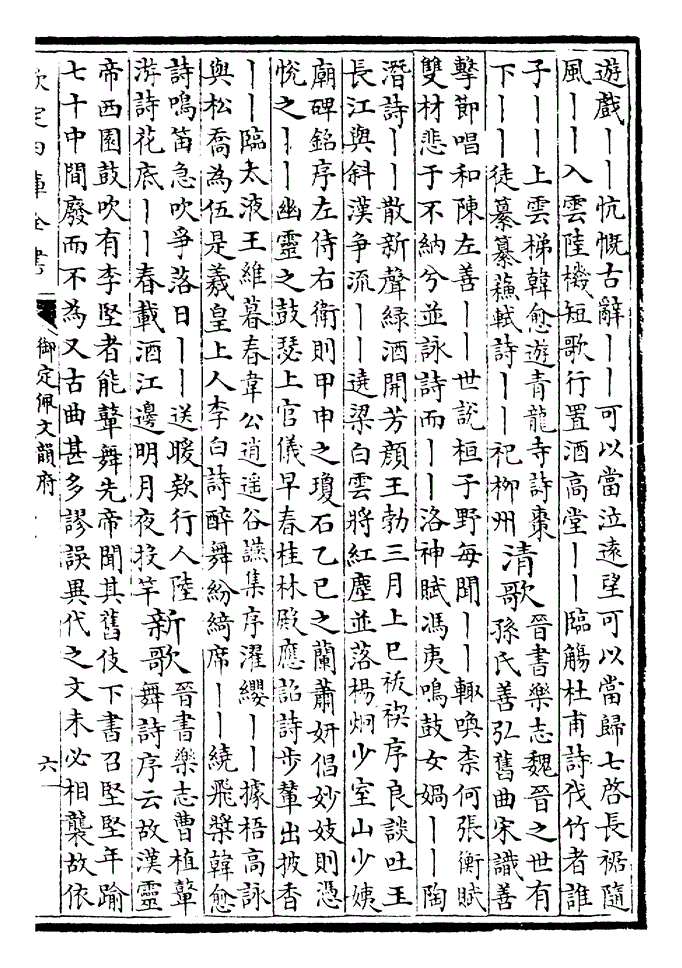 遊戲｜｜忼慨古辭｜｜可以當泣遠望可以當歸七啓長裾隨
風｜｜入雲陸機短歌行置酒高堂｜｜臨觴杜甫詩伐竹者誰
子｜｜上雲梯韓愈遊青龍寺詩棗
下｜｜徒纂纂蘓軾詩｜｜祀柳州
清歌
晉書樂志魏晉之世有
孫氏善弘舊曲宋識善
擊節唱和陳左善｜｜世說桓子野每聞｜｜輒喚柰何張衡賦
雙材悲于不納兮並詠詩而｜｜洛神賦馮夷鳴鼓女媧｜｜陶
潛詩｜｜散新聲緑酒開芳顔王勃三月上巳祓禊序良談吐玉
長江與斜漢爭流｜｜遶梁白雲將紅塵並落楊炯少室山少姨
廟碑銘序左侍右衛則甲申之瓊石乙巳之蘭蕭妍倡妙妓則憑
悅之｜｜幽靈之鼓瑟上官儀早春桂林殿應詔詩步輦出披香
｜｜臨太液王維暮春韋公逍遥谷讌集序濯纓｜｜據梧高詠
與松喬為伍是羲皇上人李白詩醉舞紛綺席｜｜繞飛梁韓愈
詩鳴笛急吹爭落日｜｜送暖欵行人陸
游詩花底｜｜春載酒江邊明月夜投竿
新歌
晉書樂志曹植鼙
舞詩序云故漢靈
帝西園鼓吹有李堅者能鼙舞先帝聞其舊伎下書召堅堅年踰
七十中間廢而不為又古曲甚多謬誤異代之文未必相襲故依
欽定四庫全書
御定佩文韻府
六